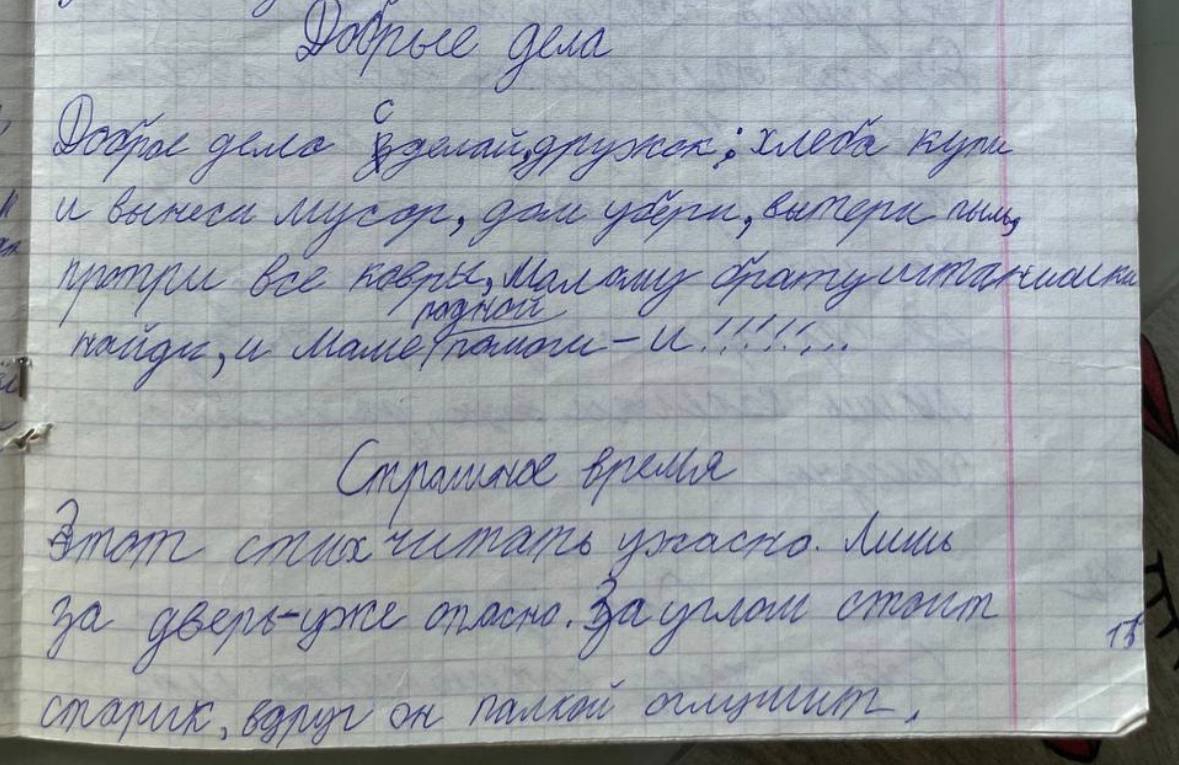 Добрые дела
Доброе дело сделай, дружок: хлеба купи
и вынеси мусор, дом убери, вытери пыль,
протри все ковры, малому брату штанишки
найди, и маме родной помоги – и!!!!!!...
Страшное время
Этот стих читать ужасно. Лишь
за дверь-уже опасно. За углом стоит
старик, вдруг он палкой оглушит.